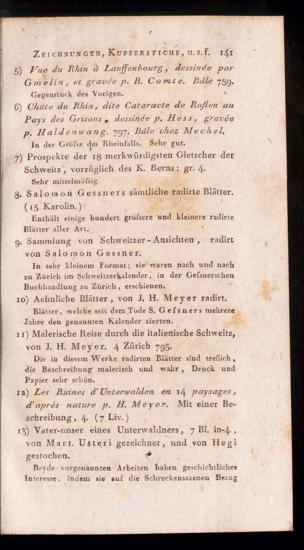 ZEICHNUNGEN, KUPFERSTICHE, u. s. f. 141
5) Vue du Rhin à Lauffenbourg, dessinée par
Gmelin, et gravée p. B. Comte. Bâle 789.
Gegenstück des Vorigen.
6) Chûte du Rhin, dite Cataracte de Ruflen au
Pays des Grisons, dessinée p. Hess, gravée
p. Haldenwang. 797. Bâle chez Mechel.
In der Größe des Rheinfalls. Sehr gut.
7) Prospekte der 18 merkwürdigsten Gletscher der
Schweitz, vorzüglich des K. Berns; gr. 4.
Sehr mittelmäßig.
8. Salomon Gessners sämtliche radirte Blätter.
(15 Karolin.)
Enthält einige hundert größere und kleinere radirte
Blätter aller Art.
9. Sammlung von Schweitzer-Ansichten, radirt
von Salomon Gessner.
In sehr kleinem Format; sie waren nach und nach
zu Zürich im Schweitzerkalender, in der Geſsnerschen
Buchhandlung zu Zürich, erschienen.
10) Aehnliche Blätter, von J. H. Meyer radirt.
Blätter, welche seit dem Tode S. Geſsners mehrere
Jahre den genannten Kalender zierten.
11) Malerische Reise durch die italienische Schweitz,
von J. H. Meyer. 4 Zürich 795.
Die in diesem Werke radirten Blätter sind treflich,
die Beschreibung malerisch und wahr, Druck und
Papier sehr schön.
12) Les Ruines d'Unterwalden en 14 paysages,
d'après nature p. H. Meyer. Mit einer Be-
schreibung, 4. (7 Liv.)
13) Vater-unser eines Unterwaldners, 7 Bl. in-4.,
von Mart. Usteri gezeichnet, und von Hegi
gestochen.
Beyde vorgenannten Arbeiten haben geschichtliches
Interesse, indem sie auf die Schreckensszenen Bezug